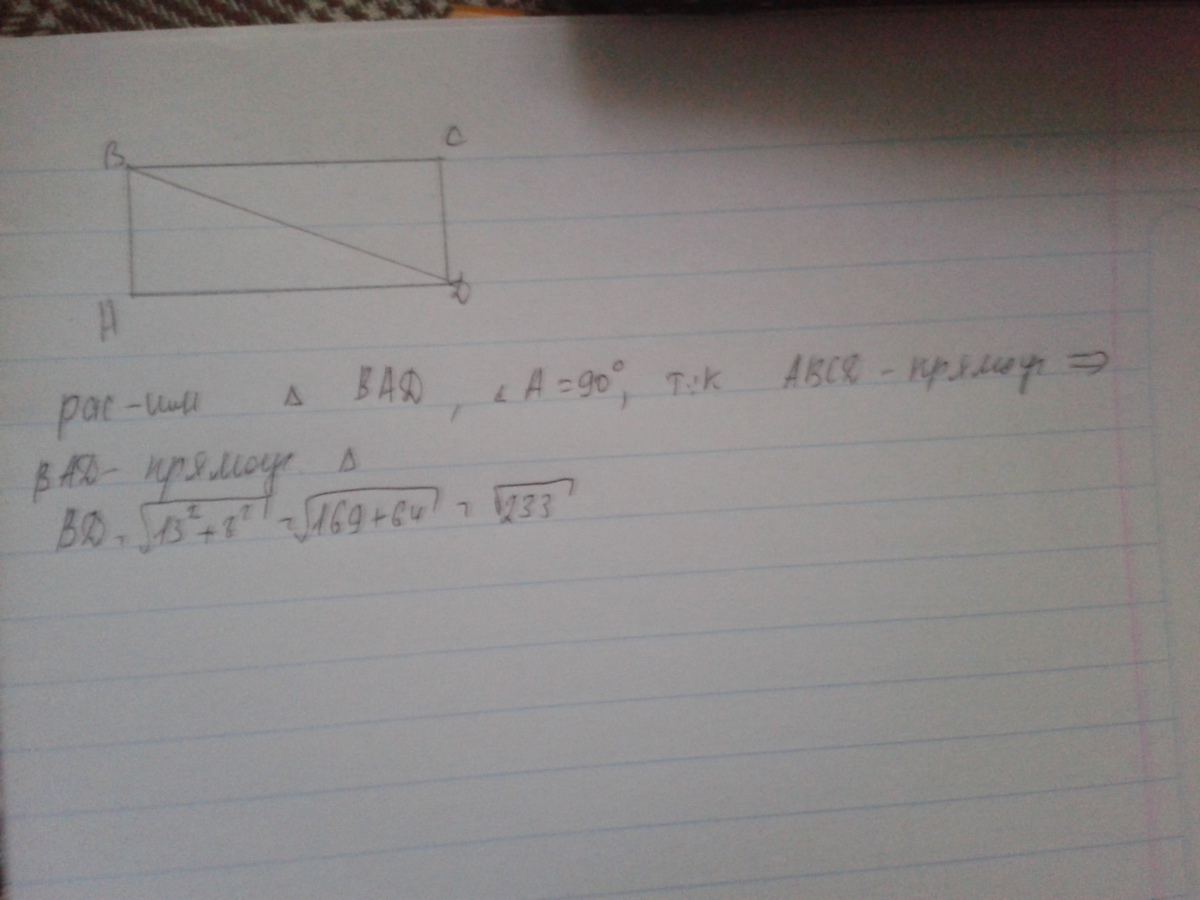 B C
A D
рас-им Δ BAD, ∠A=90°, т.к ABCD - прямоуг ⇒
BAD - прямоуг Δ
BD = √13²+8² = √169+64 = √233